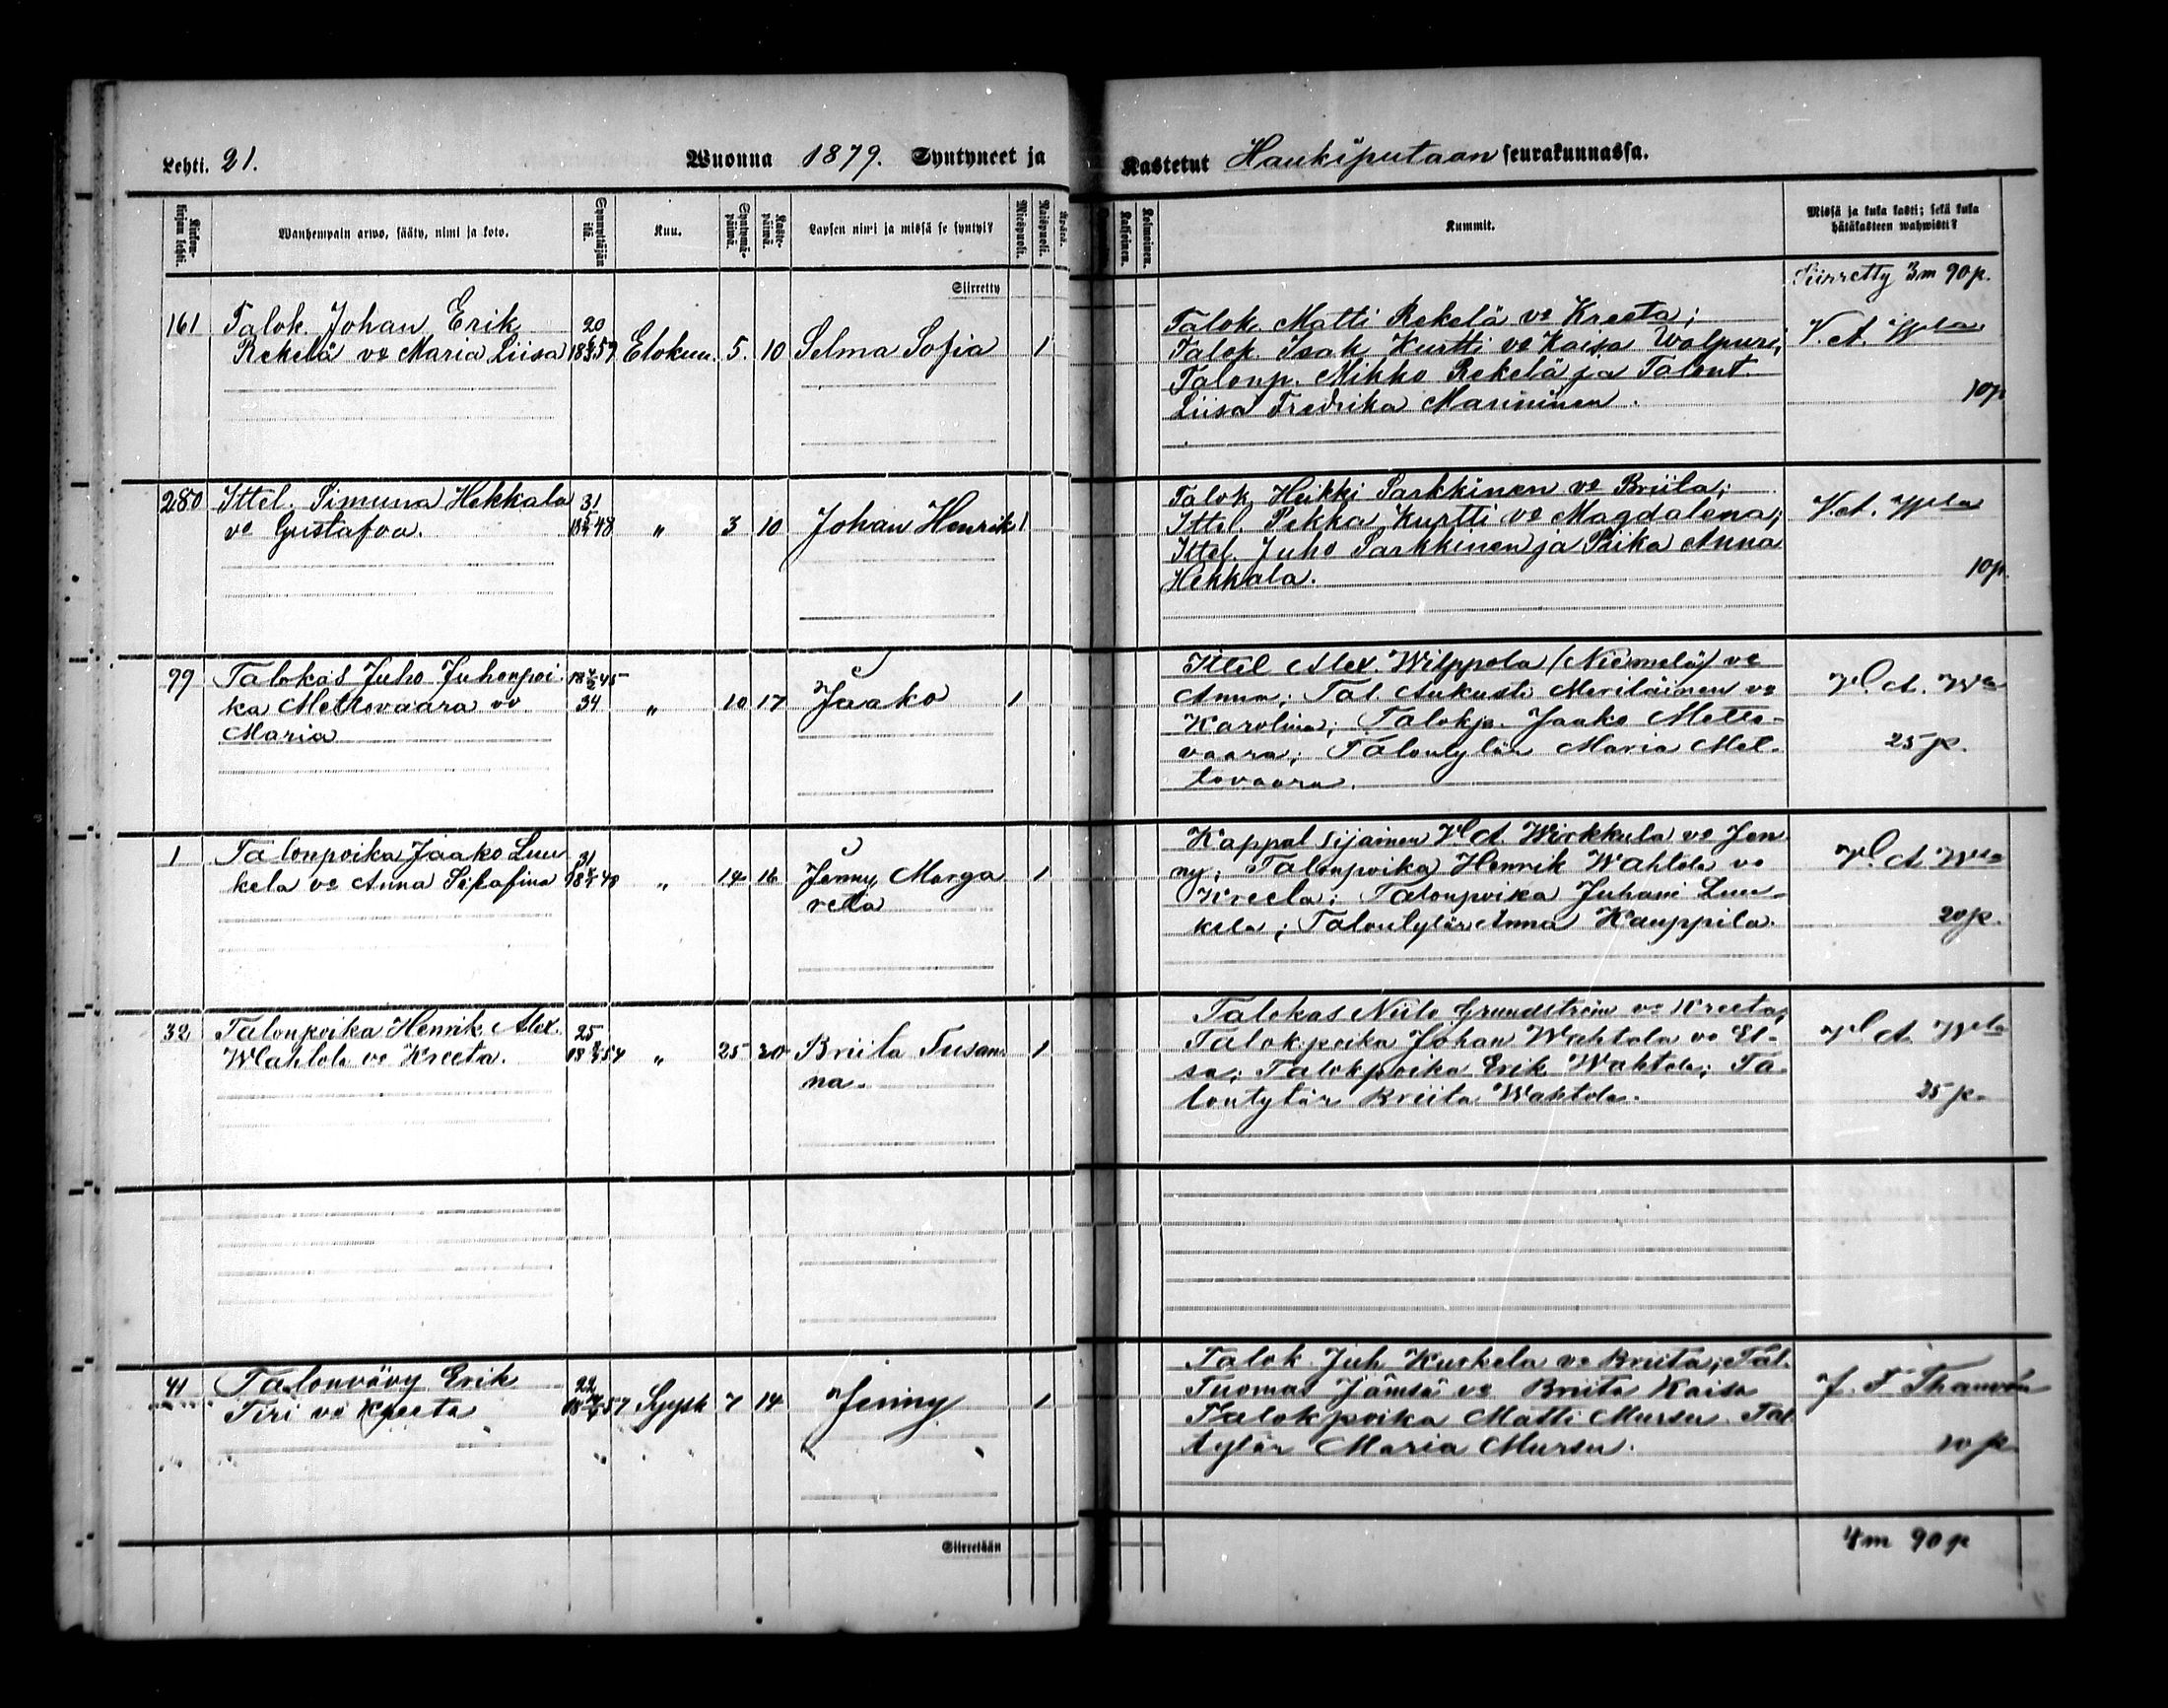 Lehti. 21. Wuonna 1879. Syntyneet ja Kastetut Haukiputaan seurakunnassa.
Kirkonkirjan lehti. Wanhempain arwo, sääty, nimi ja koto. Synnyttäjän ikä. Kuu. Syntymäpäiwä. Kastepäiwä. Lapsen nimi ja missä se syntyi? Miespuoli. Waispuoli. Kaksoinen. Kolmoinen. Kummit. Missä ja kuka kasti; sekä kuka
hätäkasteen wahwisti?
Siirretty Siirretty 3m 90p.
161 Talok. Johan Erik 20
Rekelä vo Maria Liisa 57 Elokuu. 5. 10 Selma Sofia 1
Talok. Matti Rekelä vo Kreeta;
Talok. Isak Kurtti vo Kaisa Walpuri;
Talonp. Mikko Rekelä ja Talont.
Liisa Fredrika Manninen.
V. A. Wla
10p
280 Ittel. Simuna Hekkala 31
vo Gustafva. 48 „ 3 10 Johan Henrik 1
Talok. Heikki Sarkkinen vo Briita;
Ittel. Pekka Kurtti vo Magdalena;
Ittel. Juho Sarkkinen ja Piika Anna
Hekkala.
V. A. Wla
10p.
99 Talokas Juho Juhonpoi- 45
ka Mettovaara vo 34 „ 10 17 Jaako 1
Maria
Ittel Alex. Wilppola (Niemelä) vo
Anna; Tal. Aukusti Meriläinen vo
Karolina; Talokp. Jaako Metto-
vaara; Talontytär Maria Met-
tovaara.
V. A. Wla
25 p.
1 Talonpoika Jaako Luu 31
kela vo Anna Serafina 48 „ 14 16 Jenny Marga 1
reta
Kappal sijainen V. A. Wirkkula vo Jen
ny; Talonpoika Henrik Wahtola vo
Kreeta; Talonpoika Juhani Luu-
kela; Talontytär Anna Kauppila.
V. A. Wla
20p.
32 Talonpoika Henrik Alex. 25
Wahtola vo Kreeta. 54 „ 25 30 Briita Susan- 1
na.
Talokas Niilo Grundström vo Kreeta;
Talok.poika Johan Wahtola vo El-
sa; Talokpoika Erik Wahtola; Ta-
lontytär Briita Wahtola.
V. A. Wla
25 p.
41 Talonvävy Erik 22
Tiri vo Kreeta 57 Syysk 7 14 Jenny 1
Talok. Juh. Kuskela vo Briita; Tal.
Tuomas Jämsä vo Briita Kaisa
Talokpoika Matti Mursu. Tal.
tytär Maria Mursu.
10 p
Siirretään 4m 90p